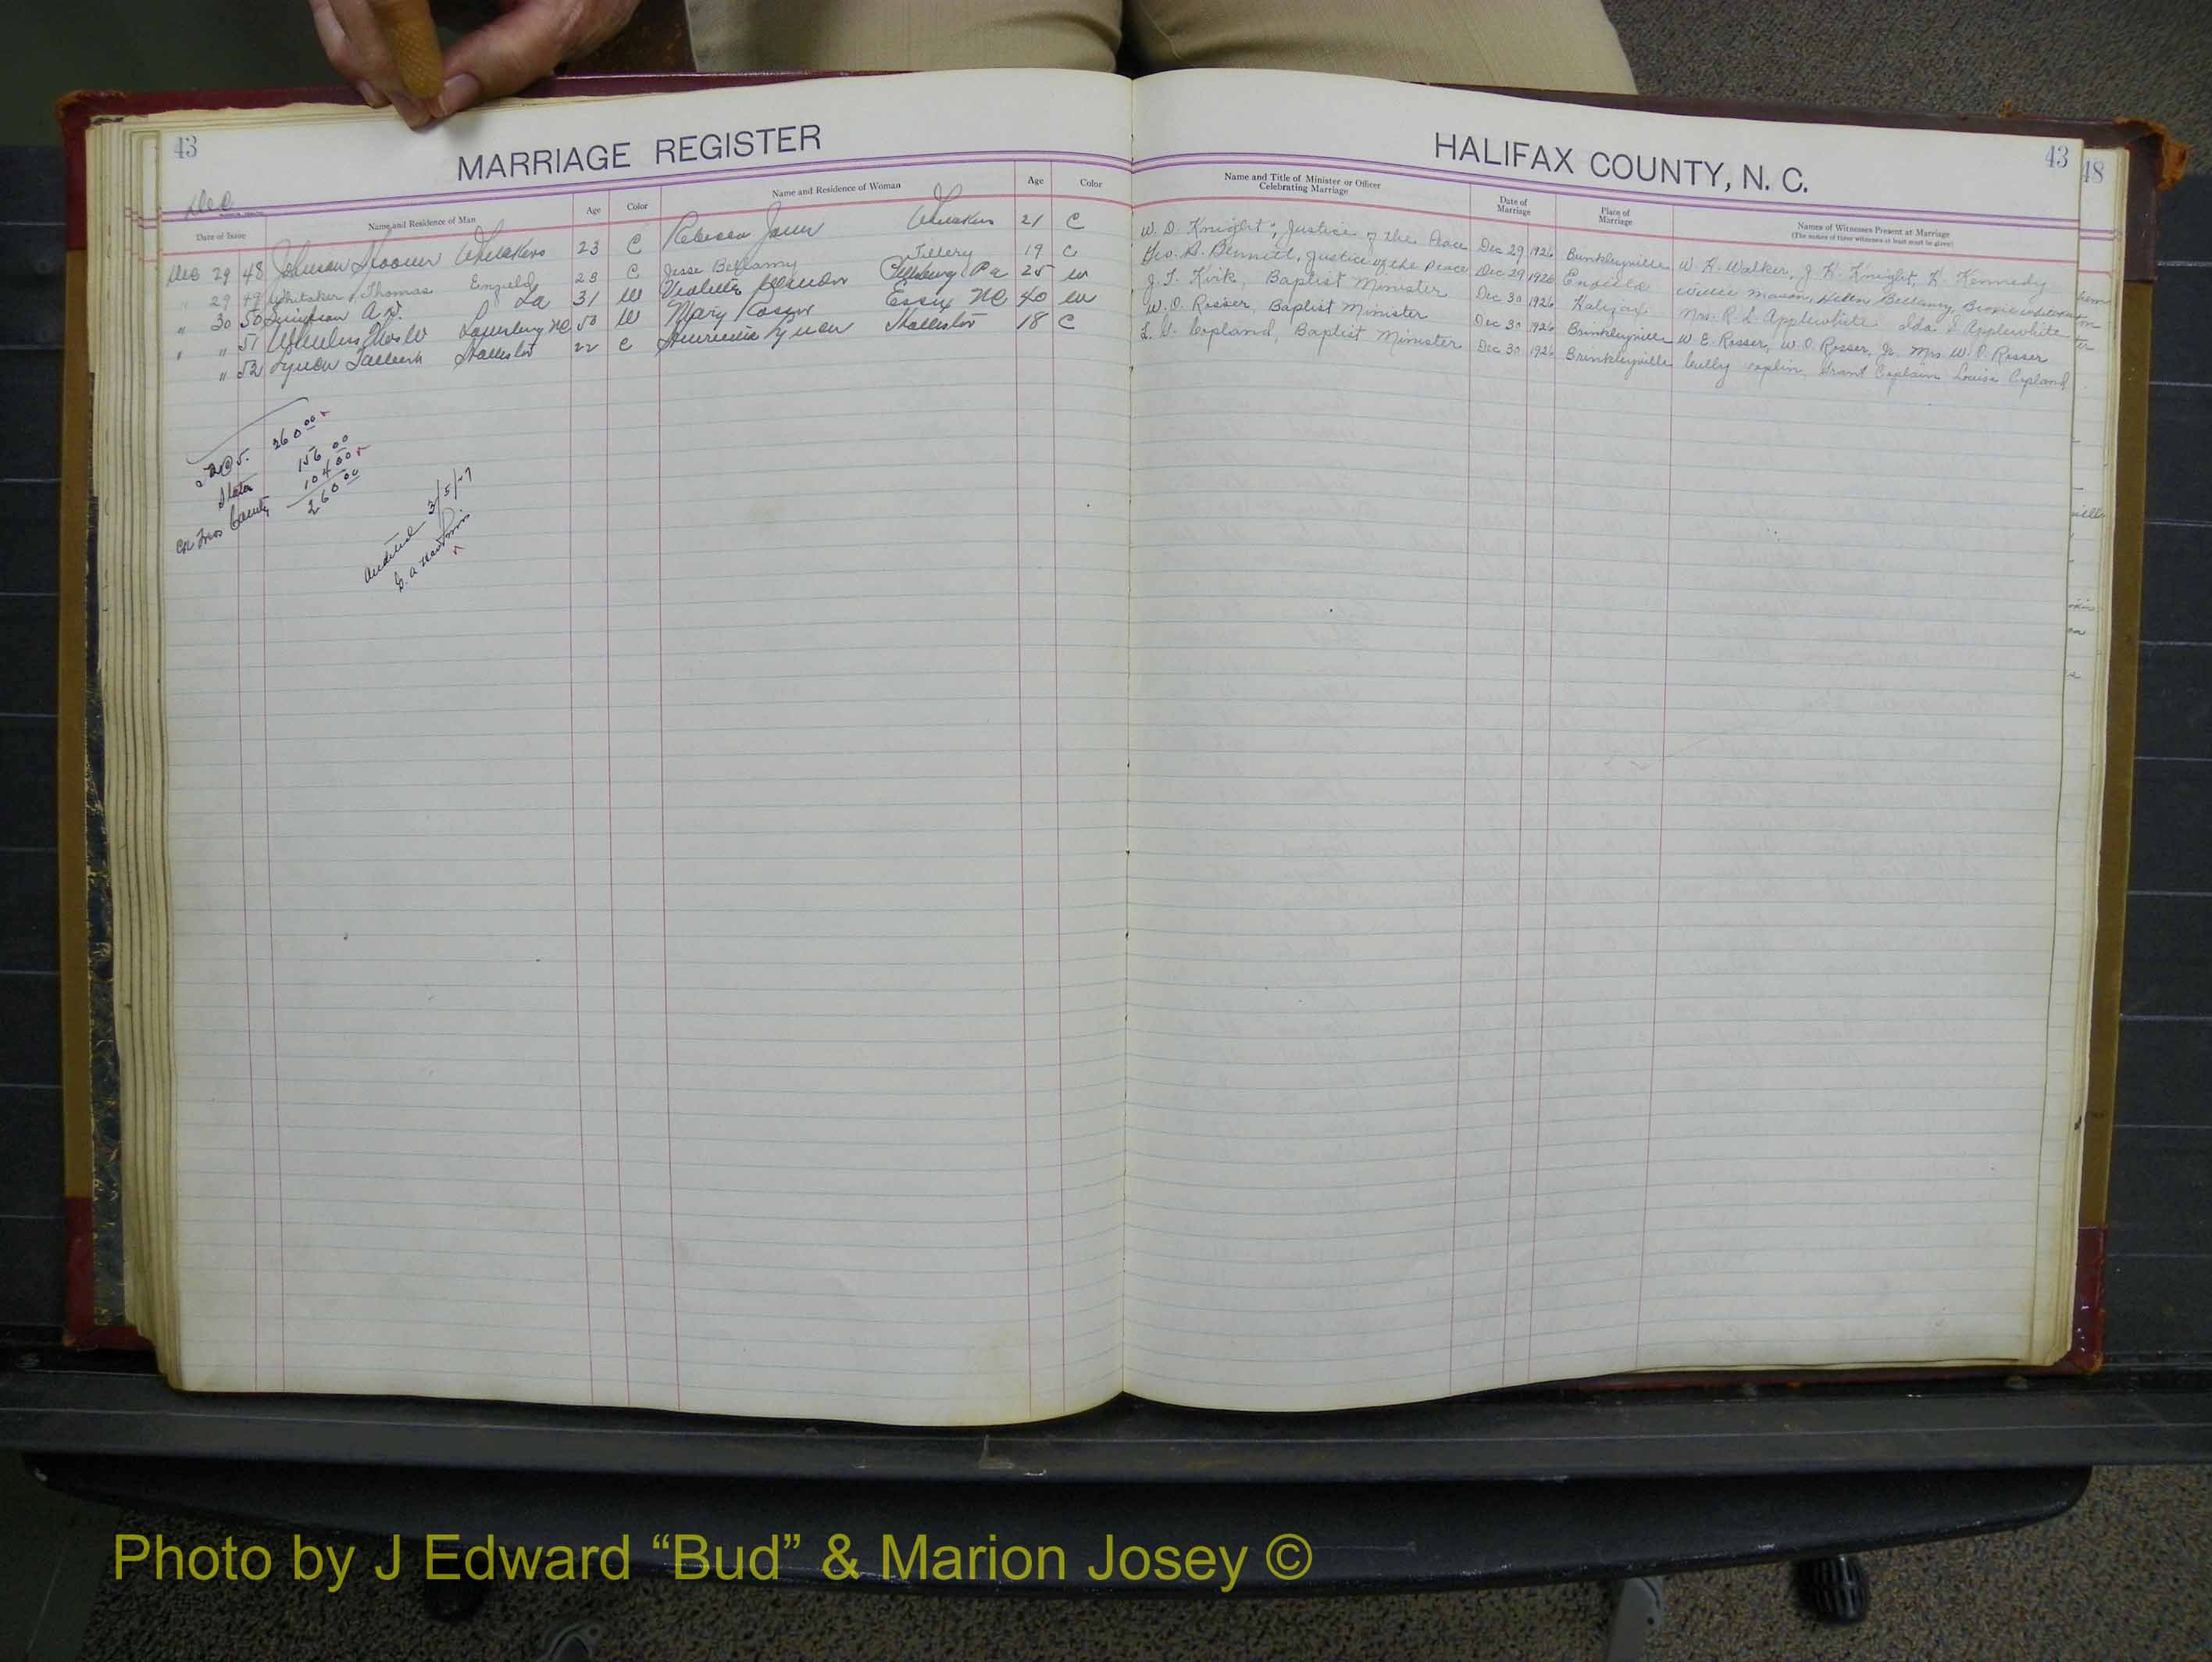 43
MARRIAGE REGISTER
HALIFAX COUNTY, N. C.
43
48
Dec
Date of Issue
Name and Residence of Man
Age
Color
Name and Residence of Woman
Age
Color
Name and Title of Minister or Officer Celebrating Marriage
Date of Marriage
Place of Marriage
Names of Witnesses Present at Marriage
(The names of three witnesses at least must be given)
Dec 29 48 Johnson Whitakers 23 C Rebecca Whitakers 21 C W. D. Knight, Justice of the Peace Dec 29 1926 Brinkleyville W. H. Walker, J. H. Knight, H. Kennedy
" 29 49 Whitaker, Thomas Enfield 23 C Jesse Bellamy Tillery 19 C Geo. D. Bennett, Justice of the Peace Dec 29 1926 Enfield Willie Mason, Helen Bellamy
" 30 50 A. D. La 31 W Pa 25 W J. T. Kirk, Baptist Minister Dec 30 1926 Halifax Mrs. R. L. Applewhite Ida L Applewhite
" " 51 NC 50 W Mary Rosser Essex NC 40 W W. O. Rosser, Baptist Minister Dec 30 1926 Brinkleyville W. E. Rosser, W. O. Rosser, Jr. Mrs W. O. Rosser
" 52 Lynch Hollister 22 C Lynch Hollister 18 C Copland, Baptist Minister Dec 30 1926 Brinkleyville Louisa Copland
52@5. 260 00
State 156 00
County 104 00
260 00
Audited 3/5/27
Photo by J Edward “Bud” & Marion Josey ©